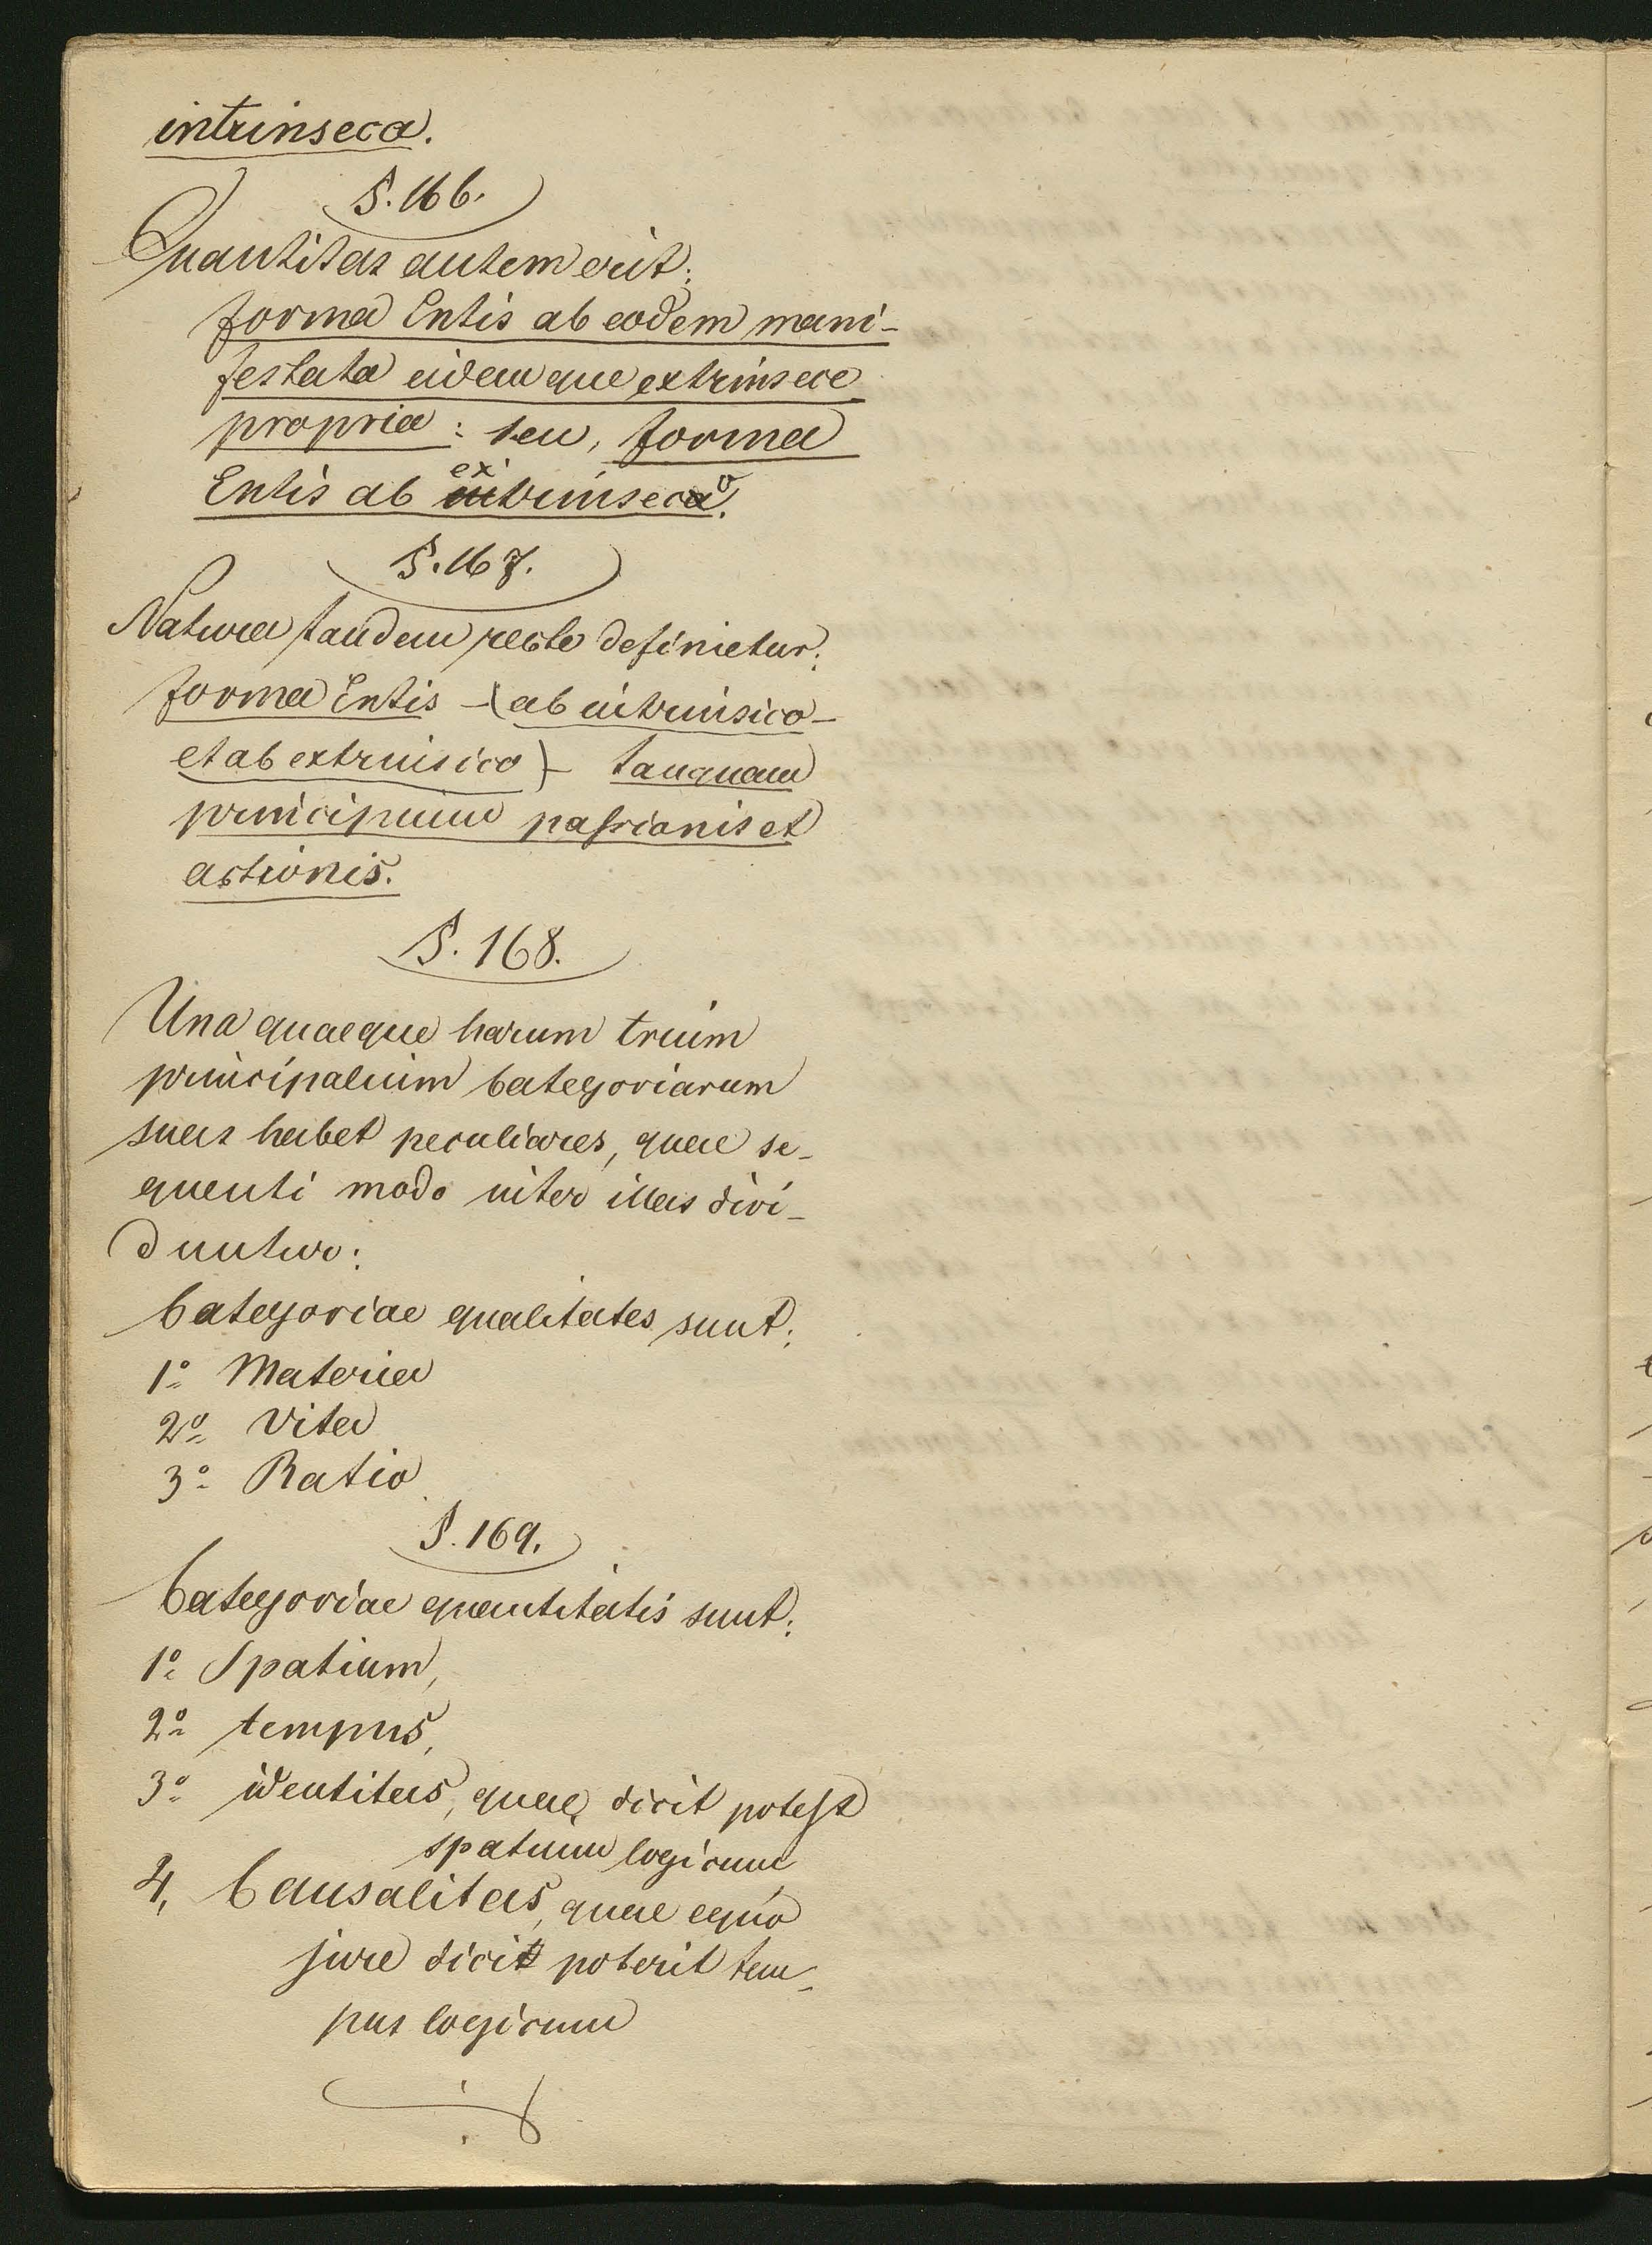 intrinseca.
§. 166.
Quantitas autem erit:
forma Entis ab eodem mani-
festata eidemque extrinsece
propria: seu, forma
Entis ab extrinseco.
§. 167.
Natura tandem recte definietur:
forma Entis – (ab intrinsico –
et ab extrinsico) – tanquam
principium passionis et
actionis.
§. 168.
Una quaeque harum trium
principalium Categoriarum
suas habet peculiares, quae se-
quenti modo inter illas divi-
duntur:
Categoriae qualitates sunt:
1º Materia
2º Vita
3º Ratio
§. 169.
Categoriae quantitatis sunt:
1º Spatium,
2º tempus,
3º identitas, quae dicit potest
spatium logicum,
4, Causalitas, quae equo
jure dici poterit tem-
pus logicum